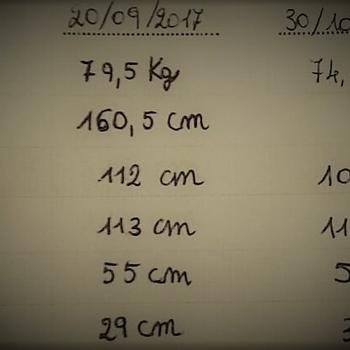 20/09/2017 30/10
79,5 Kg 74,
160,5 cm
112 cm 10
113 cm 11
55 cm 5
29 cm